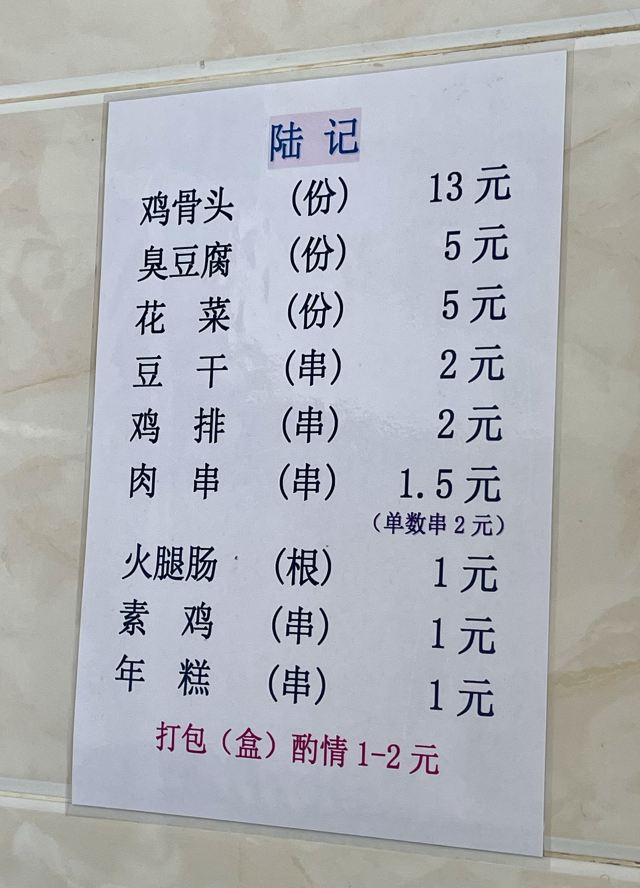 陆 记
鸡骨头 (份) 13元
臭豆腐 (份) 5元
花 菜 (份) 5元
豆 干 (串) 2元
鸡 排 (串) 2元
肉 串 (串) 1.5元
(单数串2元)
火腿肠 (根) 1元
素 鸡 (串) 1元
年 糕 (串) 1元
打包(盒)酌情1-2元